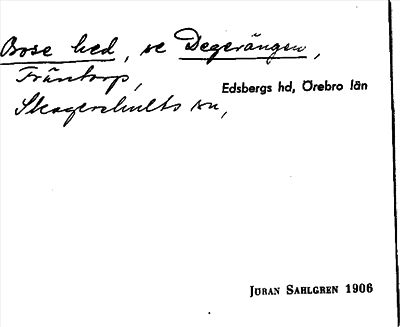 Bose hed, se Degerängen,
Träntorp,
Edsbergs hd, Örebro län
Skagershults sn,
JÖRAN SAHLGREN 1906